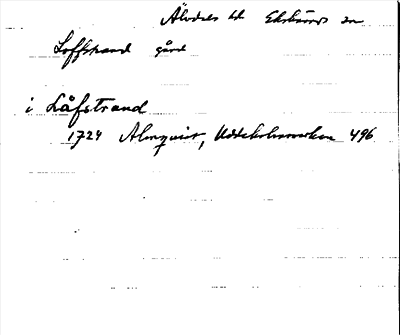 Älvdals hd Ekshärads sn
Loffstrand gård
i Låfstrand
1724 Almquist, Uddeholmsverken 496